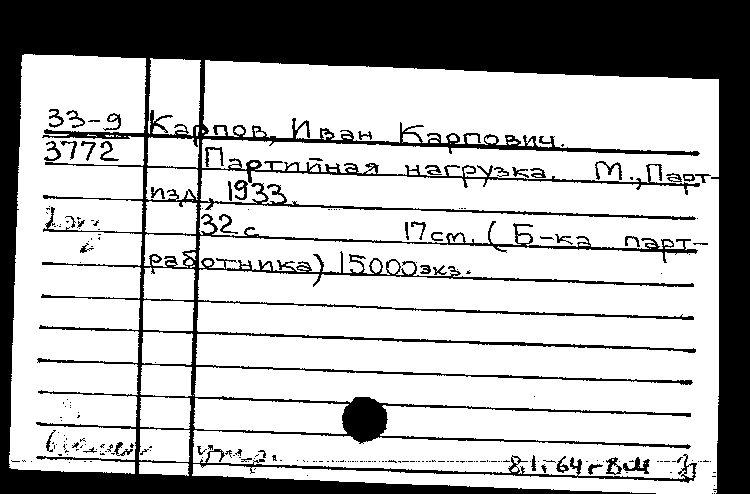 33-9 Карпов, Иван Карпович.
3772 Партийная нагрузка. М., Парт-
изд., 1933.
32 с. 17 cm. (Б-ка парт-
работника) 15000 экз.
утр.
8.1.64 г.